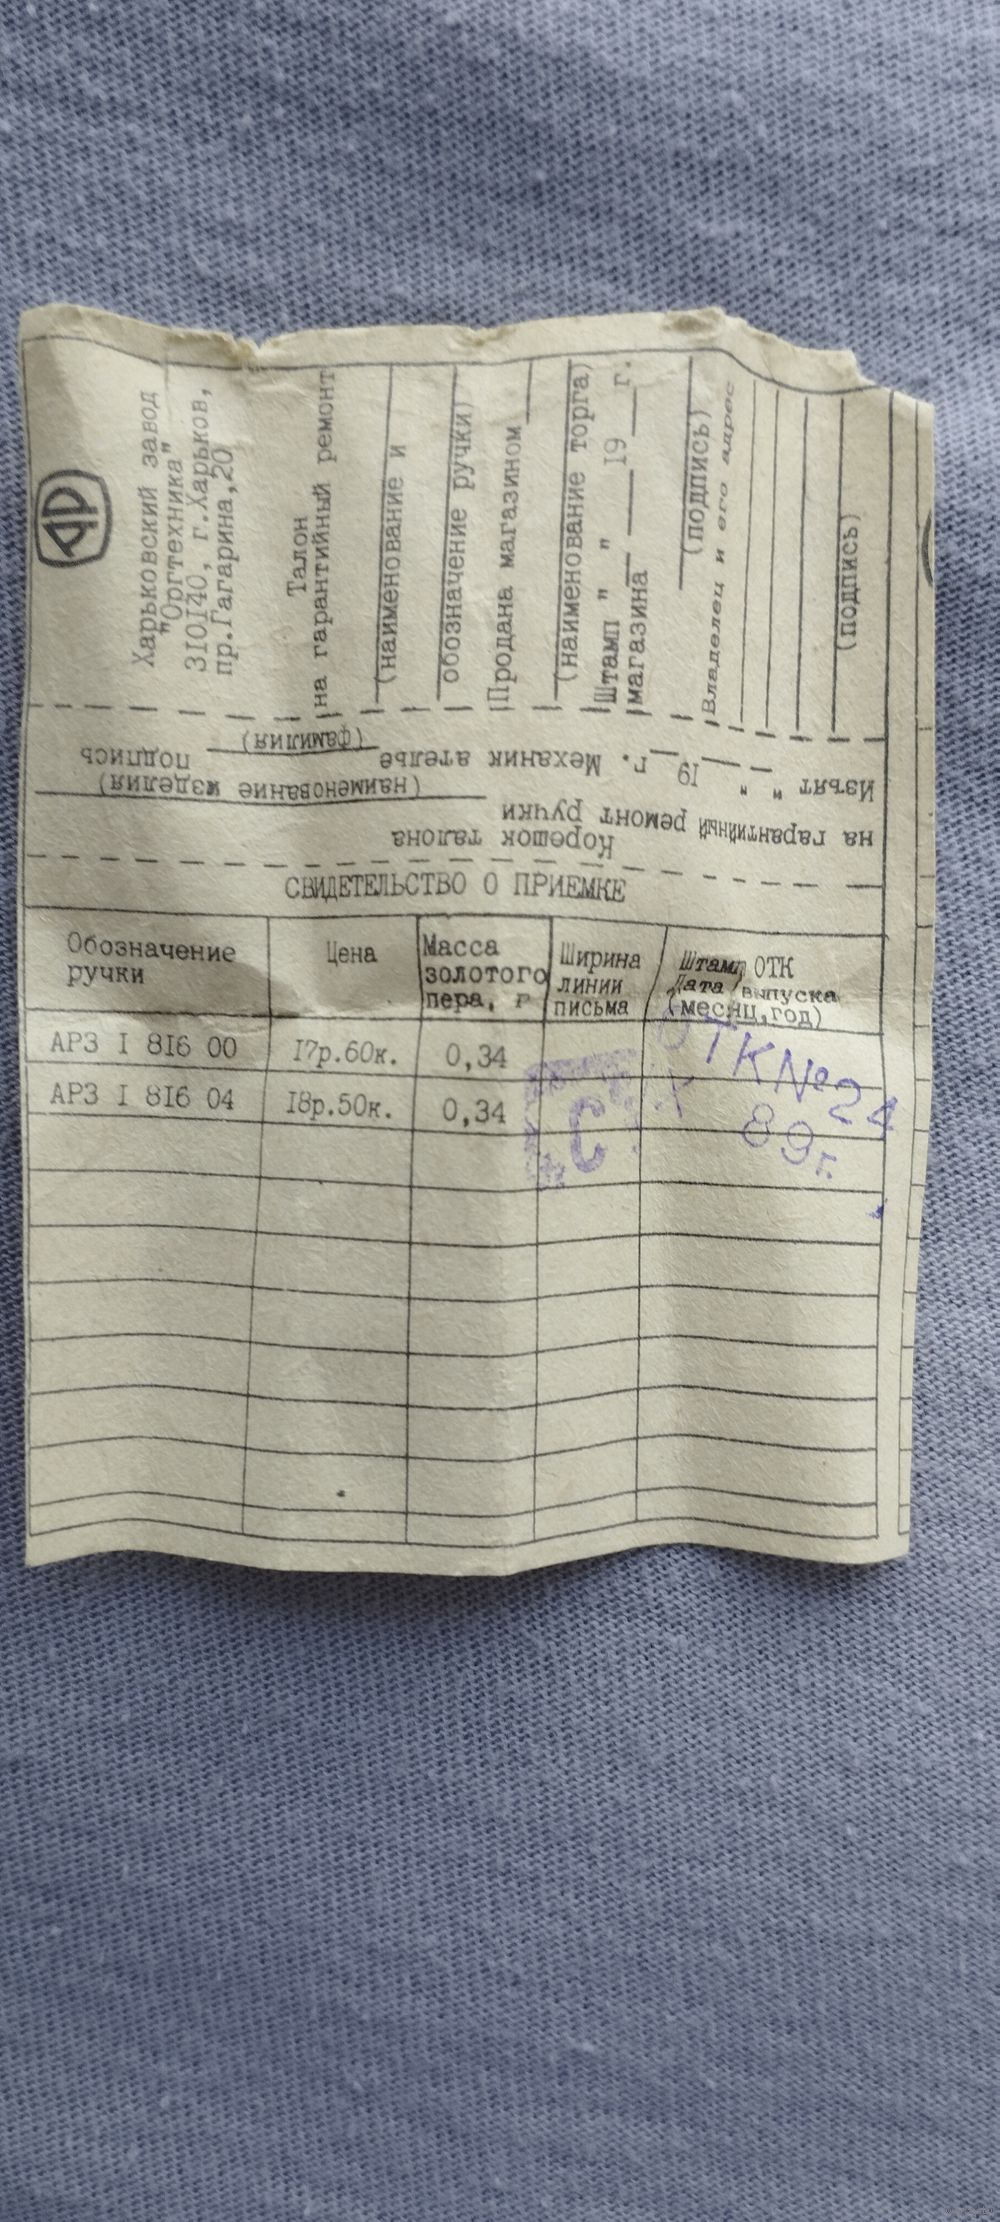 Харьковский завод
"Оргтехника"
310140, г.Харьков,
пр.Гагарина,20
Талон
на гарантийный ремонт
(наименование и
обозначение ручки)
Продана магазином
(наименование торга)
Штамп " " 19 г.
магазина
(подпись)
Владелец и его адрес
(подпись)
Корешок талона
на гарантийный ремонт ручки
(наименование изделия)
Изъят " " 19 г. Механик ателье
(фамилия) подпись
СВИДЕТЕЛЬСТВО О ПРИЕМКЕ
Обозначение ручки
Цена
Масса золотого пера, г
Ширина линии письма
Штамп ОТК
Дата выпуска
(месяц,год)
АРЗ I 816 00 17р.60к. 0,34
АРЗ I 816 04 18р.50к. 0,34
ОТК №24
89г.